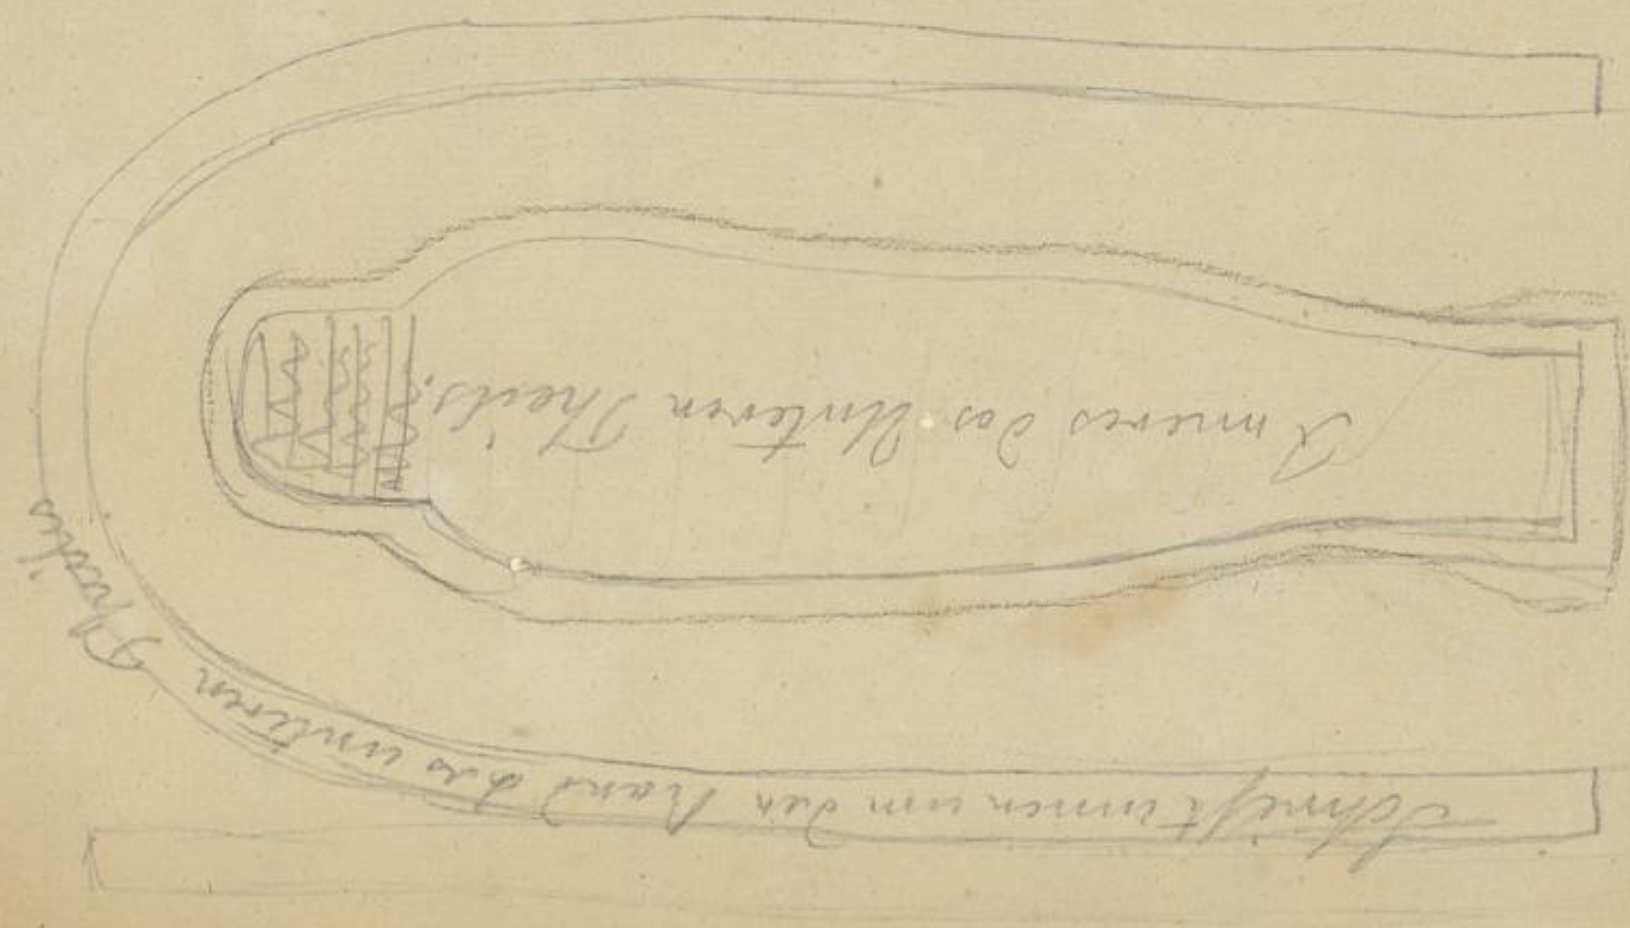 Inneres des Unteren Theils.
Schrift innen um den Rand des unteren Theiles